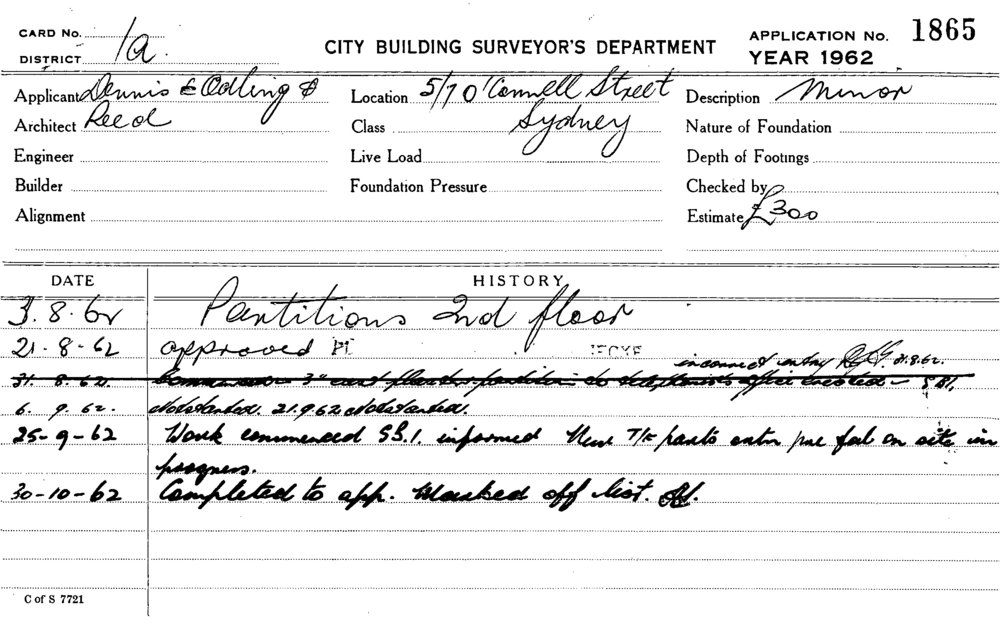 CARD No.
DISTRICT 1a.
CITY BUILDING SURVEYOR'S DEPARTMENT
APPLICATION No. 1865
YEAR 1962
Applicant Dennis & Odling &
Architect Reed
Engineer
Builder
Alignment
Location 5/7 O'Connell Street
Class Sydney
Live Load
Foundation Pressure
Description Minor
Nature of Foundation
Depth of Footings
Checked by
Estimate £300
DATE HISTORY
3.8.62 Partitions 2nd floor
21-8-62 approved
incorrect entry 31.8.62.
31.8.62. 3" erected
6.9.62. Not started. 21.9.62 Not started.
25-9-62 Work commenced informed on site in
progress.
30-10-62 Completed to app. Marked off list.
C of S 7721